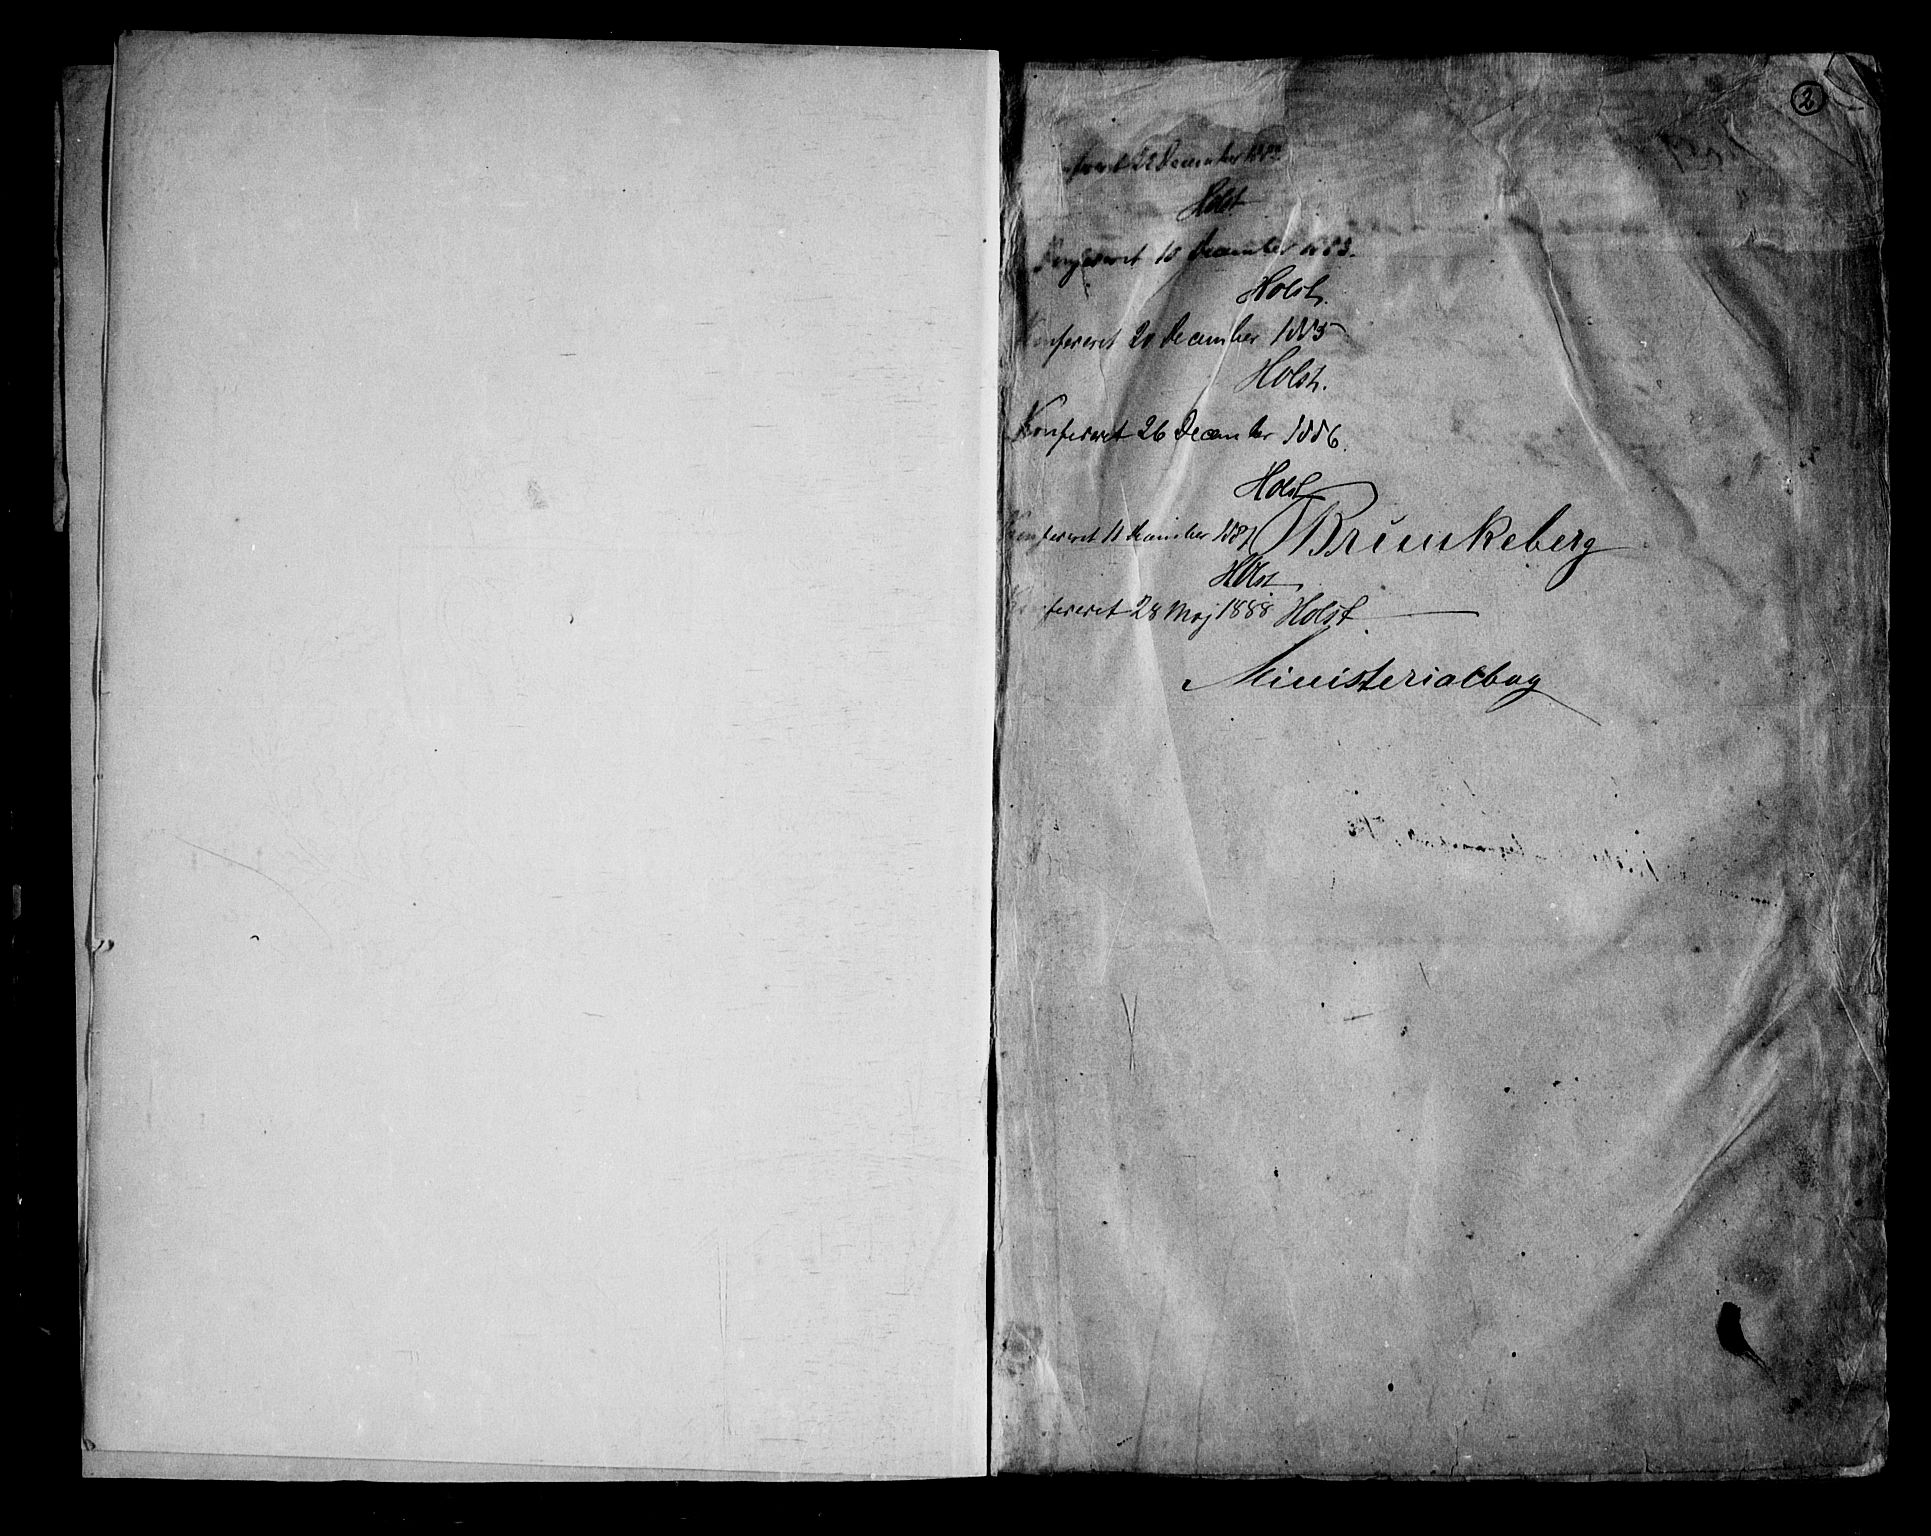 2
22 December
Holst
Konfereret 18 December 1883.
Holst.
Konfereret 20 December 1885
Holst.
Konfereret 26 December 1886.
Holst
Konfereret 11 December 1887
Brunkeberg
Holst
Konfereret 28 Maj 1888 Holst.
Ministerialbog